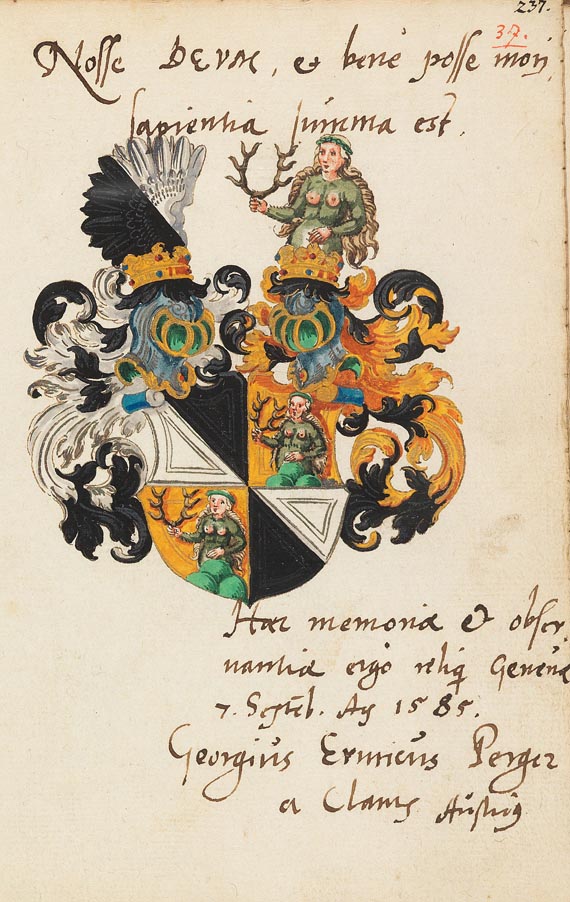 237.
37.
Nosse DEVM, et benè posse mori,
sapientia summa est.
Haec memoriae & obser,
uantiae ergò reliq Geneuae
7. Septeb. Aº 1585.
Georgius Ernricus Perger
a Clams Austriȝ